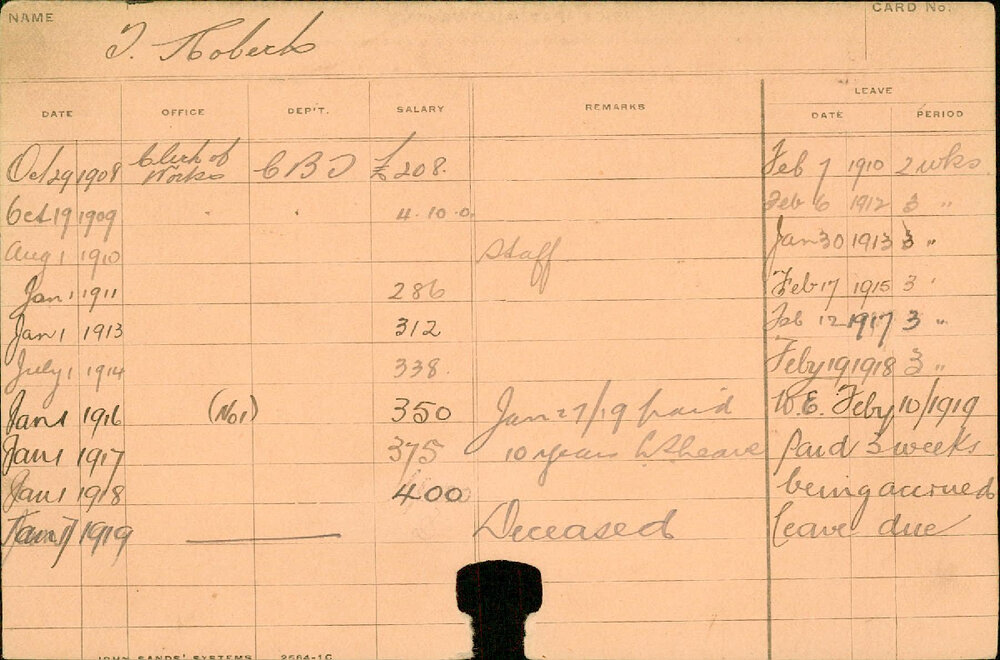 NAME T. Roberts CARD No.
LEAVE
DATE OFFICE DEP'T. SALARY REMARKS DATE PERIOD
Oct 29 1908 Clerk of Works C B D £208. Feb 7 1910 2 wks
Oct 19 1909 " " 4.10.0. Feb 6 1912 3 "
Aug 1 1910 Staff Jan 30 1913 3 "
Jan 1 1911 286 Feb 17 1915 3 "
Jan 1 1913 312 Feb 12 1917 3 "
July 1 1914 338. Feby 19 1918 3 "
Jan 1 1916 (No1) 350 Jan 27/19 paid W.E. Feby 10/1919
Jan 1 1917 375 10 years Paid 3 weeks
Jan 1 1918 400 being accrued
Jan 1919 Deceased leave due
JOHN SANDS' SYSTEMS 2564-1C